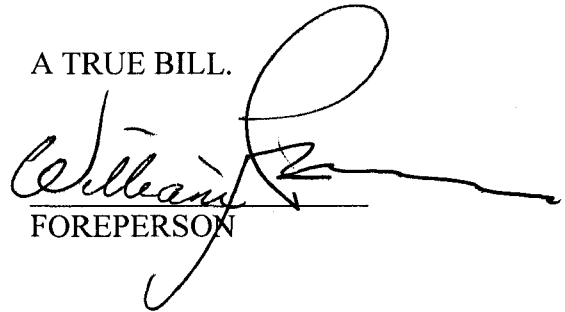 A TRUE BILL.
William
FOREPERSON